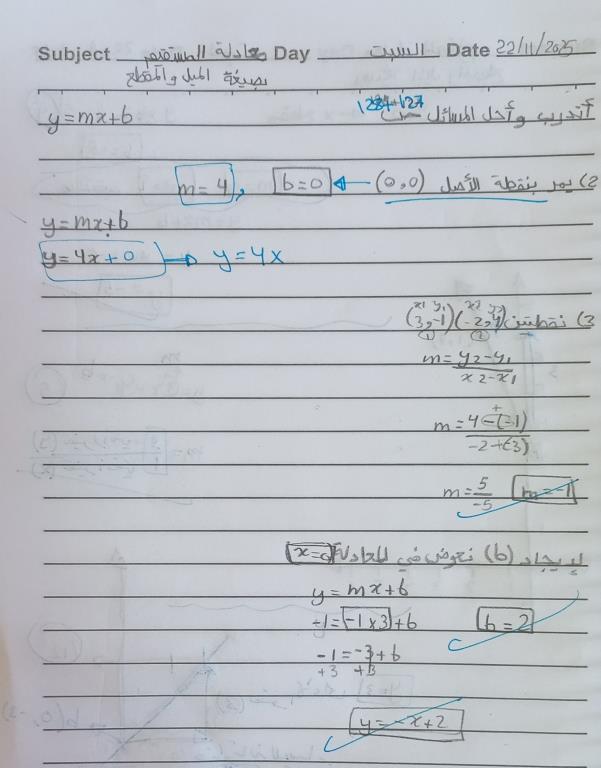 Subject معادلة المستقيم Day السبت Date 22/11/2025
بصيغة الميل والمقطع
أتدرب وأحل المسائل ص 127
y=mx+b
2) يمر بنقطة الأصل (0,0) ← b=0 , m=4
y=mx+b
y=4x+0 → y=4x
x1 y1 x2 y2
3) نقطتين (3,-1) (-2,4)
① ②
m=y2-y1
x2-x1
m=4-(-1)
-2+(-3)
m=5/-5 m=-1
لإيجاد (b) نعوض في المعادلة x=0
y=mx+b
-1=-1x3+b b=2
-1=-3+b
+3 +3
y=-x+2